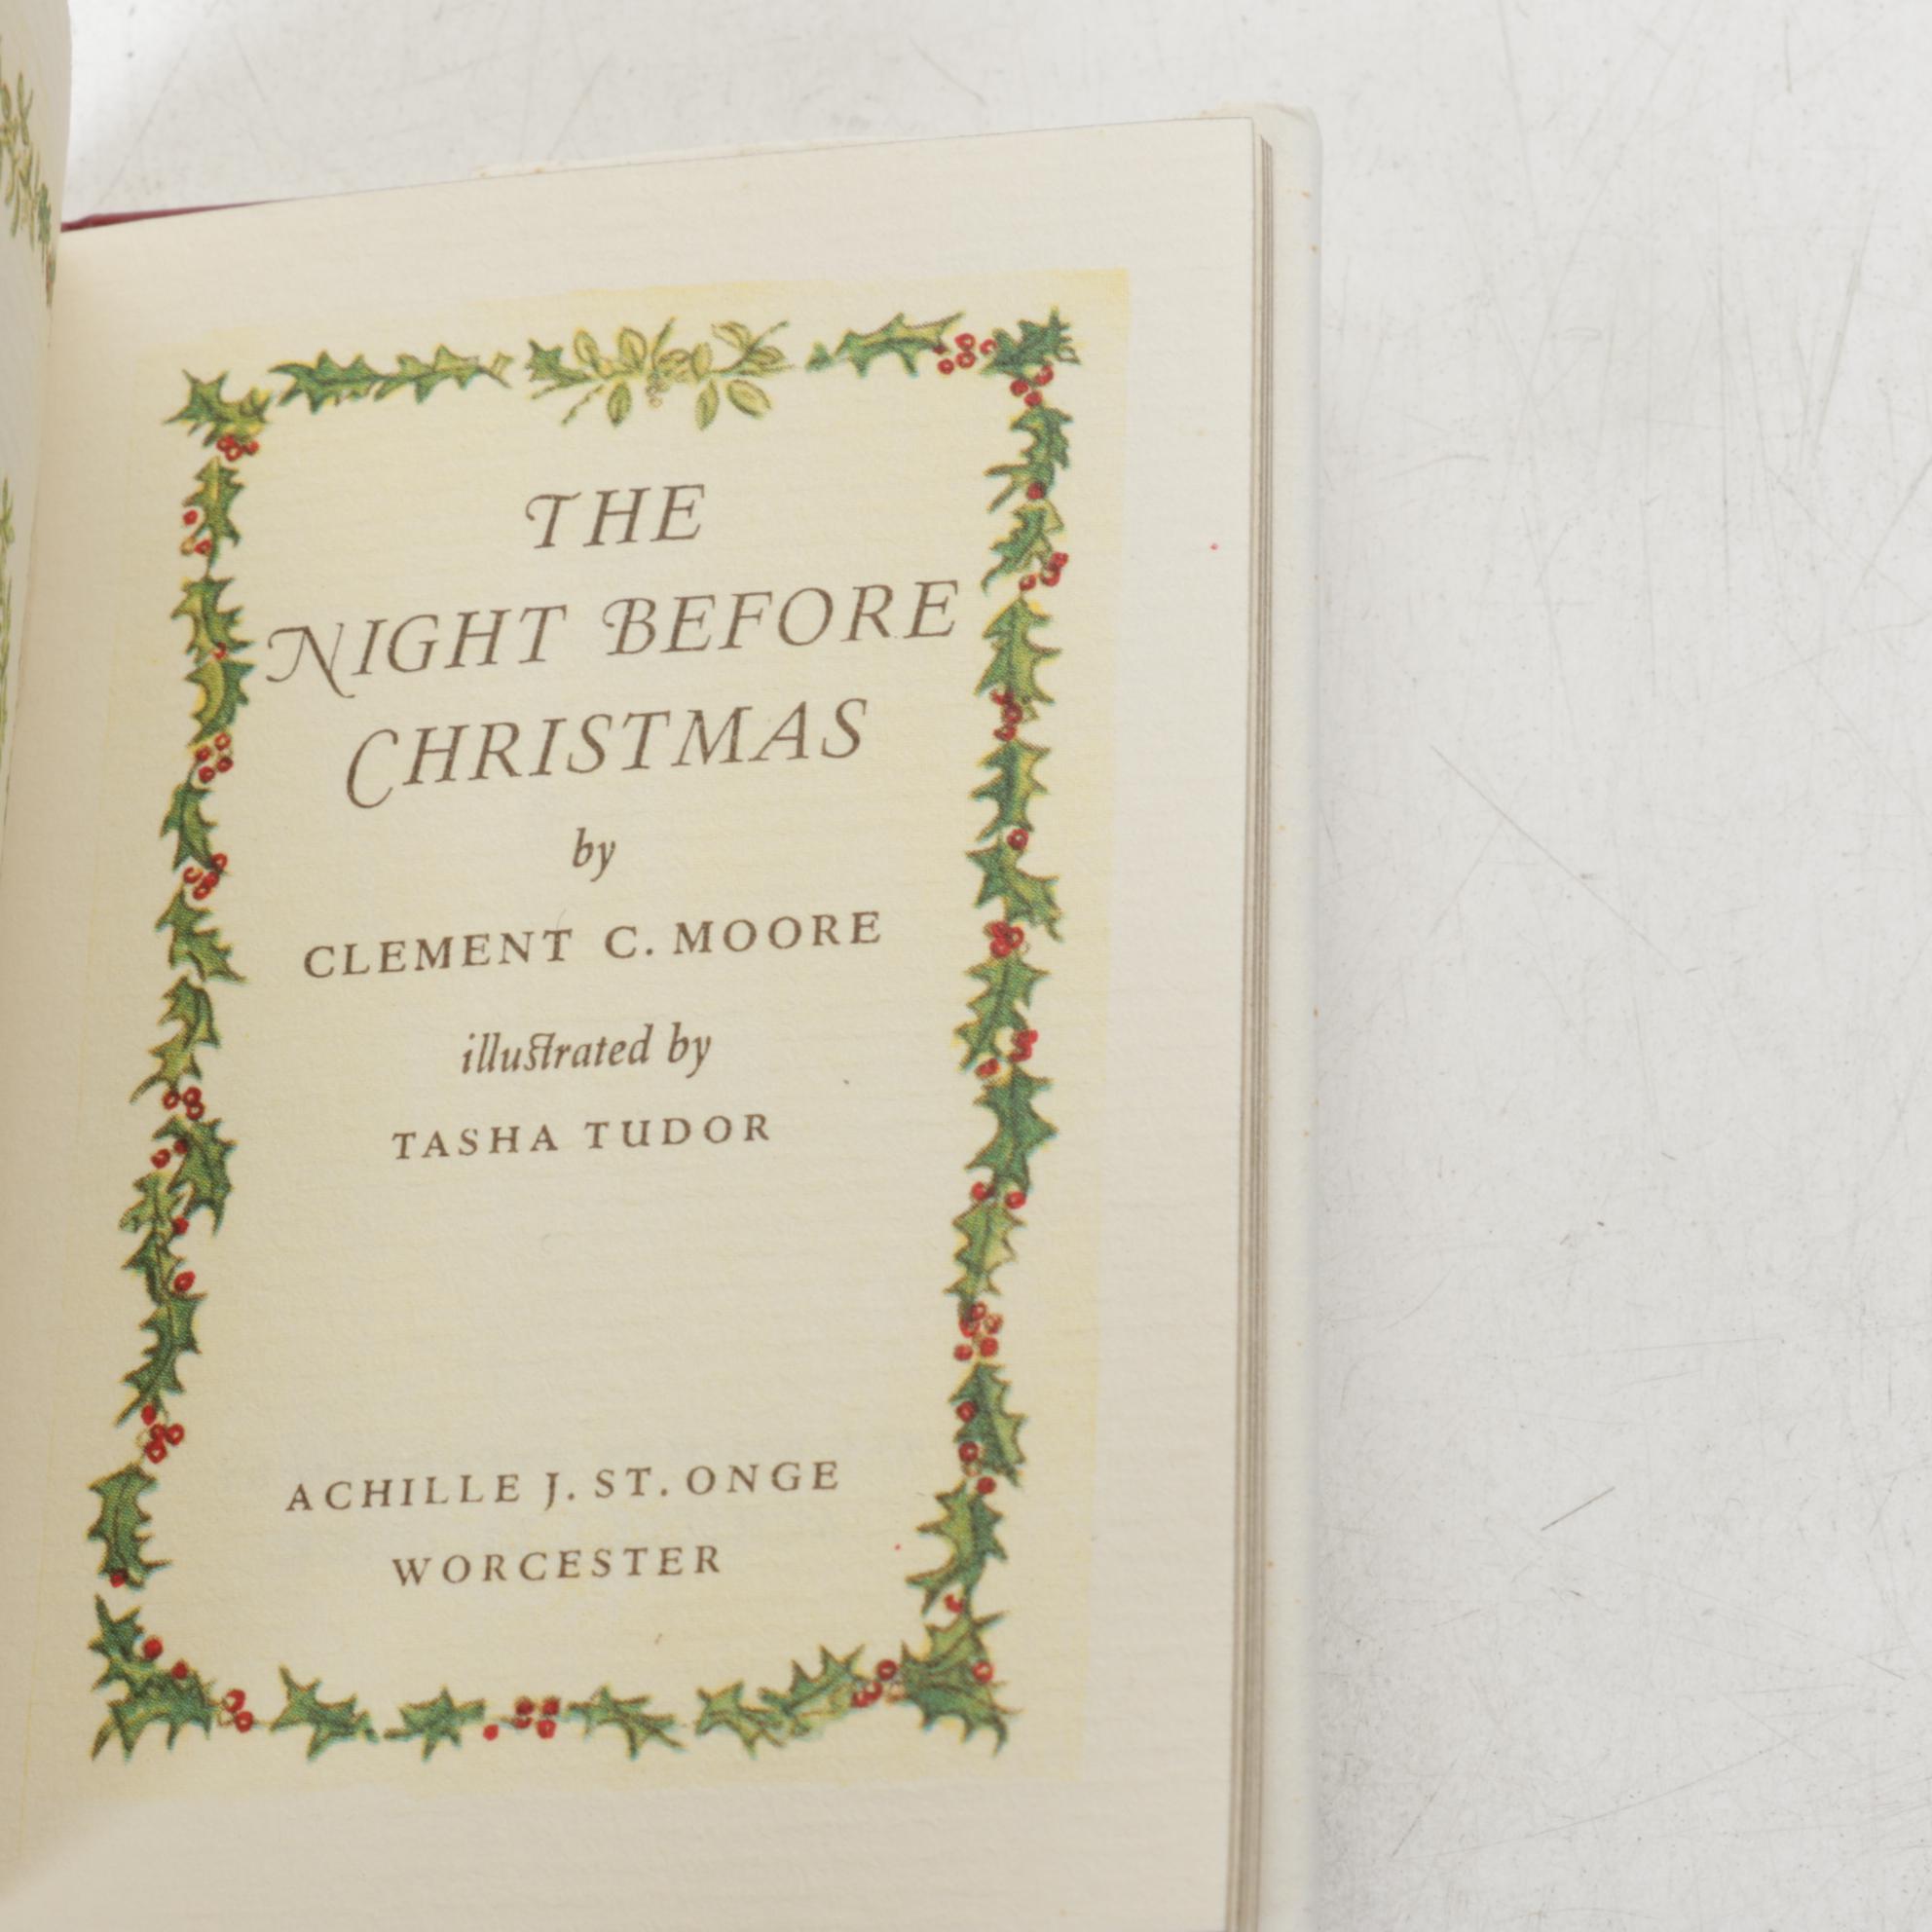 THE
NIGHT BEFORE
CHRISTMAS
by
CLEMENT C. MOORE
illustrated by
TASHA TUDOR
ACHILLE J. ST. ONGE
WORCESTER